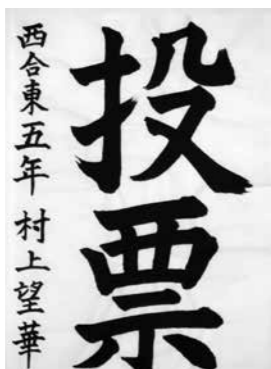 投票
西合東五年 村上望華